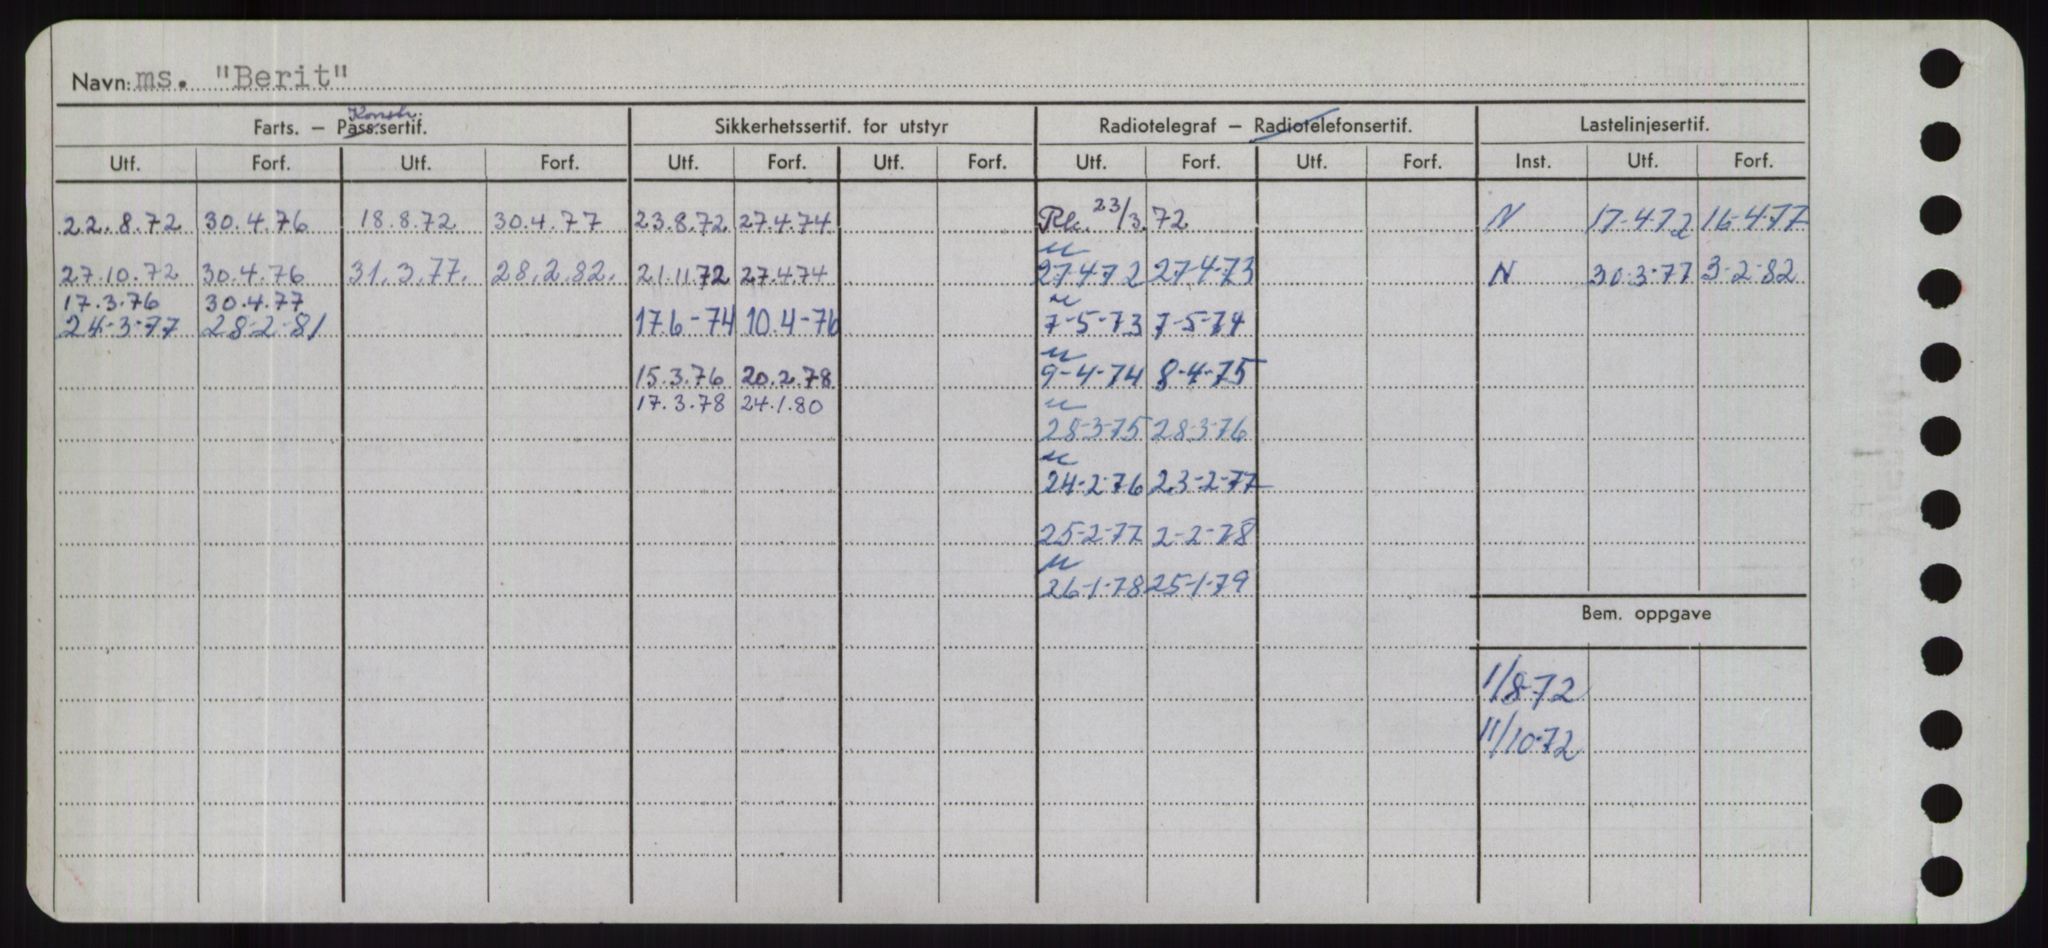 Navn: ms. "Berit"
Konstr.
Farts. – Pass.sertif. Sikkerhetssertif. for utstyr Radiotelegraf – Radiotelefonsertif. Lastelinjesertif.
Utf. Forf. Utf. Forf. Utf. Forf. Utf. Forf. Utf. Forf. Utf. Forf. Inst. Utf. Forf.
22.8.72 30.4.76 18.8.72 30.4.77 23.8.72 27.4.74 23/3.72 N 17-4-72 16-4-77
27.10.72 30.4.76 31.3.77. 28.2.82. 21.11.72 27.4.74 27-4-72 27-4-73 N 30-3-77 3-2-82
17.3.76 30.4.77
24-3-77 28-2-81 17.6-74 10.4-76 7-5-73 7-5-74
15.3.76 20.2.78 9-4-74 8-4-75
17.3.78 24.1.80
28-3-75 28-3-76
24-2-76 23-2-77
25-2-77 2-2-78
26-1-78 25-1-79
Bem. oppgave
1/8-72
11/10-72